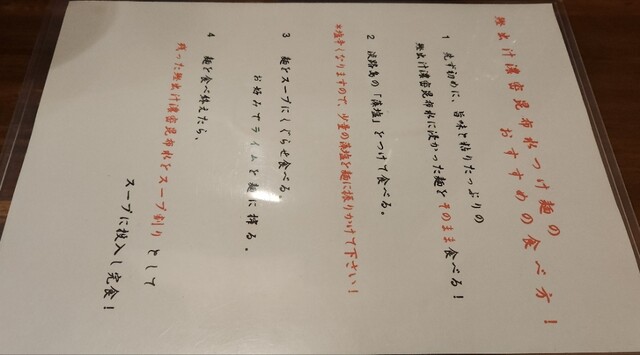 鰹出汁濃密昆布水つけ麺の
おすすめの食べ方！
1 先ず初めに、旨味と粘りたっぷりの
鰹出汁濃密昆布水に浸かった麺をそのまま食べる！
2 淡路島の「藻塩」をつけて食べる。
※塩辛くなりますので、少量の藻塩を麺に振りかけて下さい！
3 麺をスープにくぐらせ食べる。
お好みでライムを麺に搾る。
4 麺を食べ終えたら、
残った鰹出汁濃密昆布水をスープ割りとして
スープに投入し完食！